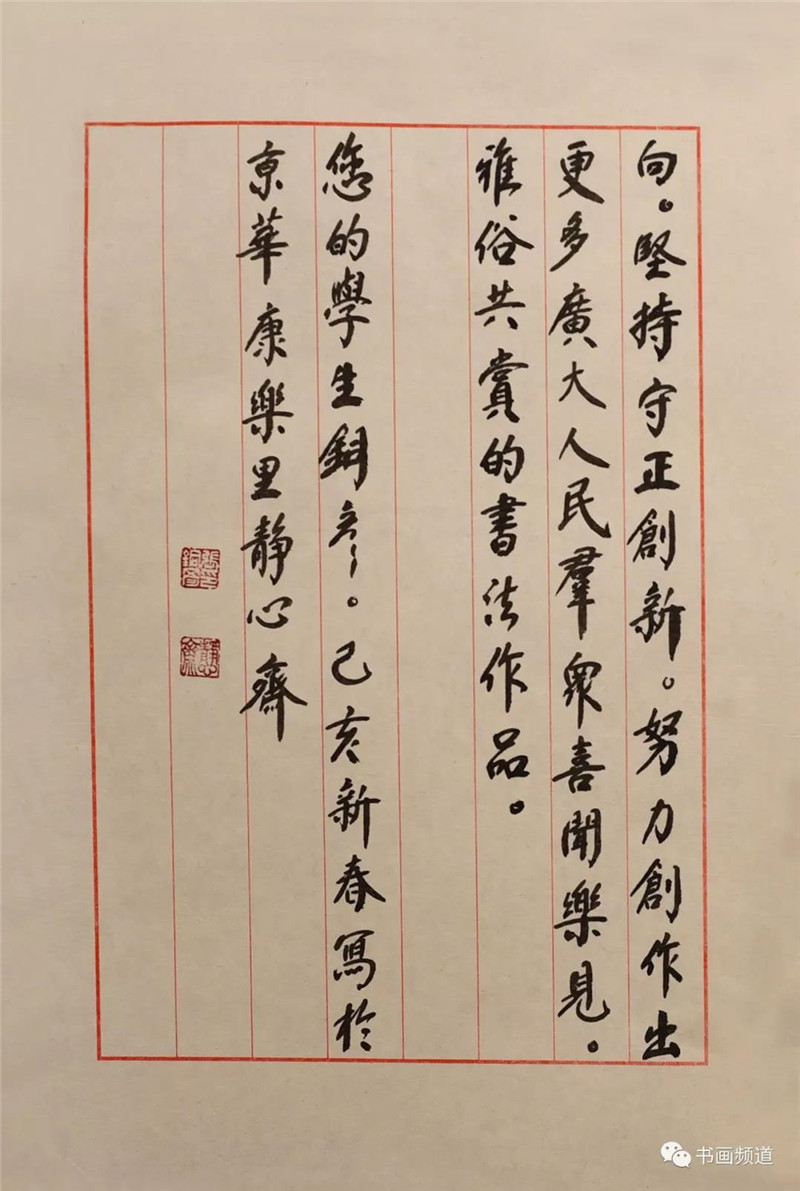 向。堅持守正創新。努力創作出
更多廣大人民羣眾喜聞樂見。
雅俗共賞的書法作品。
您的學生銅彥。己亥新春寫於
京華康樂里靜心齋
书画频道